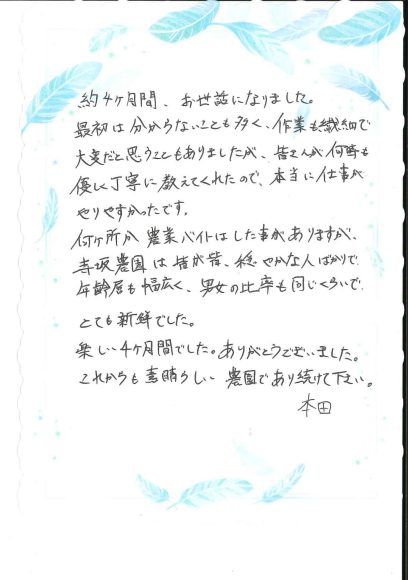 約4ヶ月間、お世話になりました。
最初は分からないことも多く、作業も繊細で
大変だと思うこともありましたが、皆さんが何時も
優しく丁寧に教えてくれたので、本当に仕事が
やりやすかったです。
何ヶ所か農業バイトはした事がありますが、
寺坂農園は皆が皆、穏やかな人ばかりで、
年齢層も幅広く、男女の比率も同じくらいで
とても新鮮でした。
楽しい4ヶ月間でした。ありがとうございました。
これからも素晴らしい農園であり続けて下さい。
本田